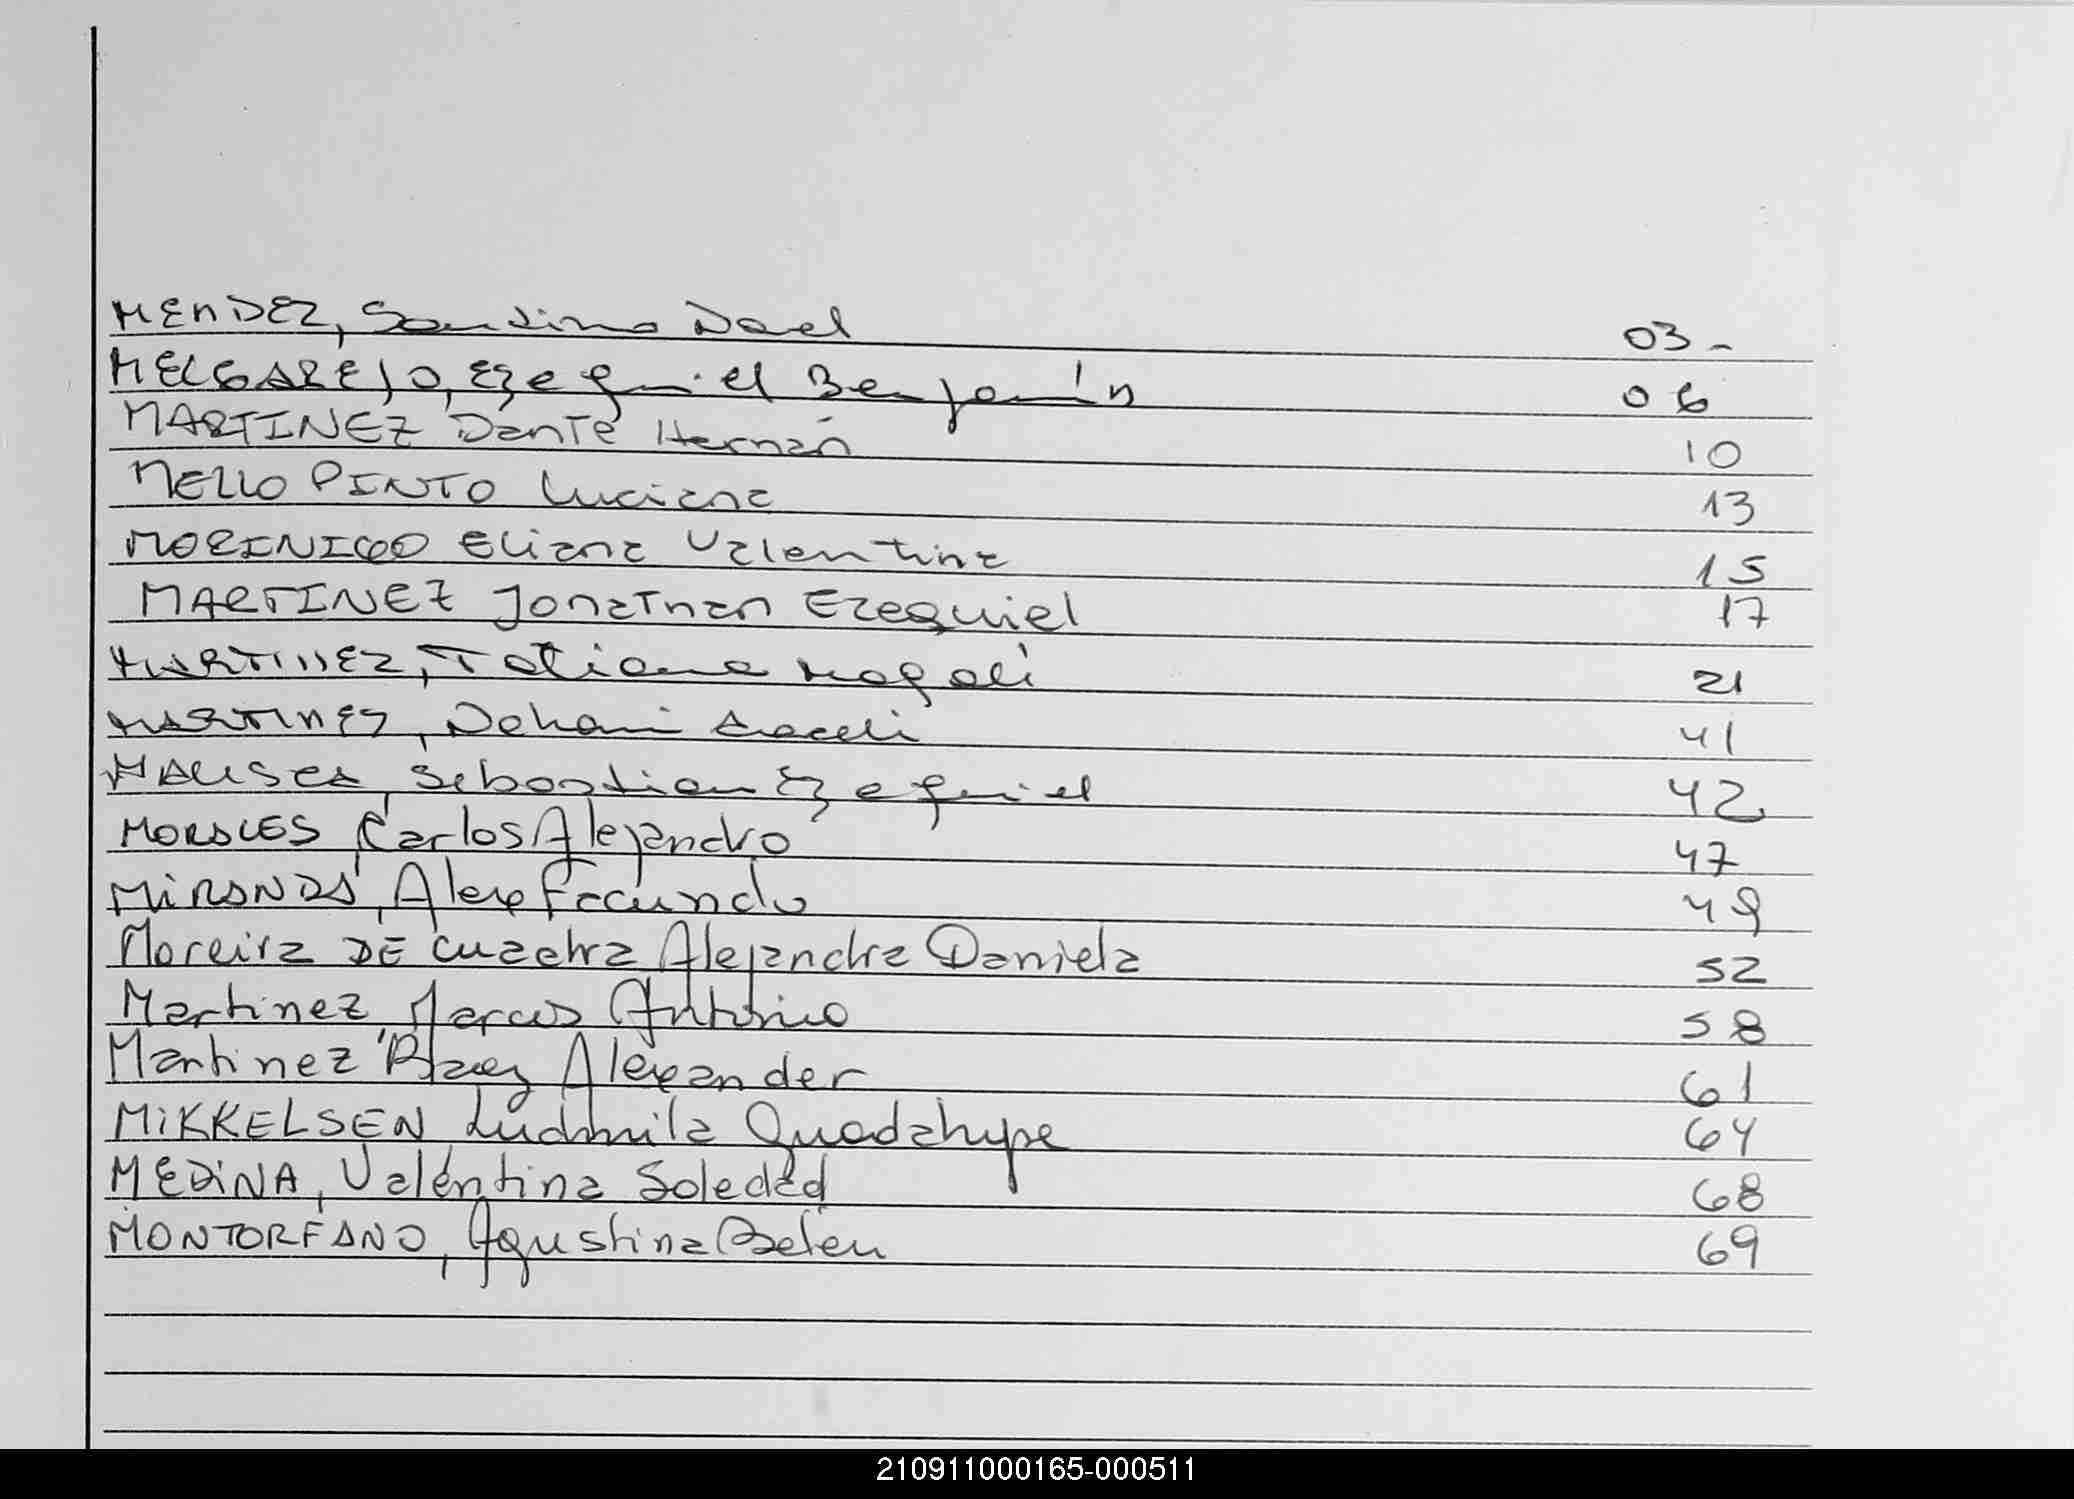 MENDEZ, Santino Dael 03-
MELGAREJO, Ezequiel Benjamín 06
MARTINEZ Dante Hernán 10
MELLO PINTO Luciana 13
MORINIGO Eliana Valentina 15
MARTINEZ Jonathan Ezequiel 17
MARTINEZ, Tatiana Magalí 21
MARTINEZ, Araceli 41
Sebastian Ezequiel 42
MORALES Carlos Alejandro 47
MIRANDA, Alex Facundo 49
Moreira DE Alejandra Daniela 52
Martinez Marcos Antonio 58
Martinez Baez Alexander 61
MIKKELSEN Ludmila Guadalupe 64
MEDINA, Valentina Soledad 68
MONTORFANO, Agustina Belén 69
210911000165-000511